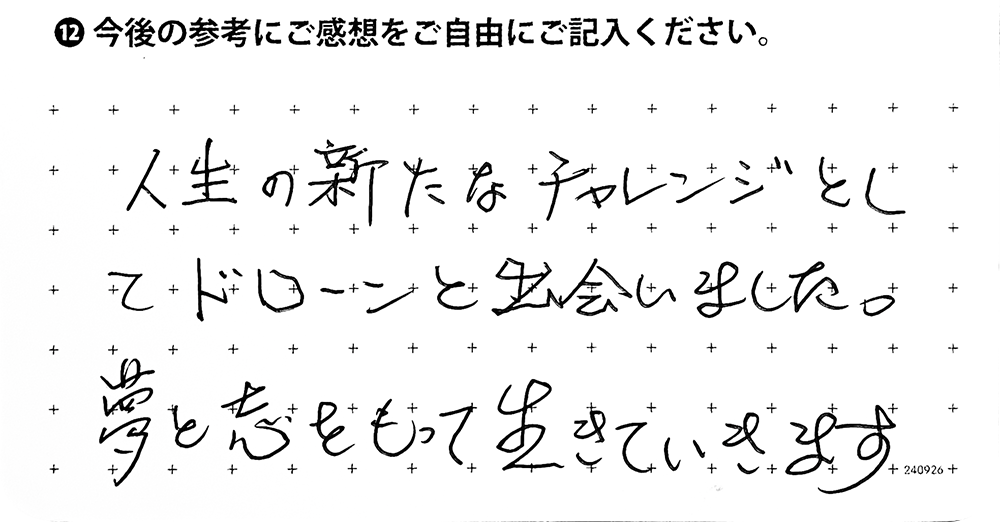 ⓬ 今後の参考にご感想をご自由にご記入ください。
人生の新たなチャレンジとし
てドローンと出会いました。
夢と志をもって生きていきます
240926